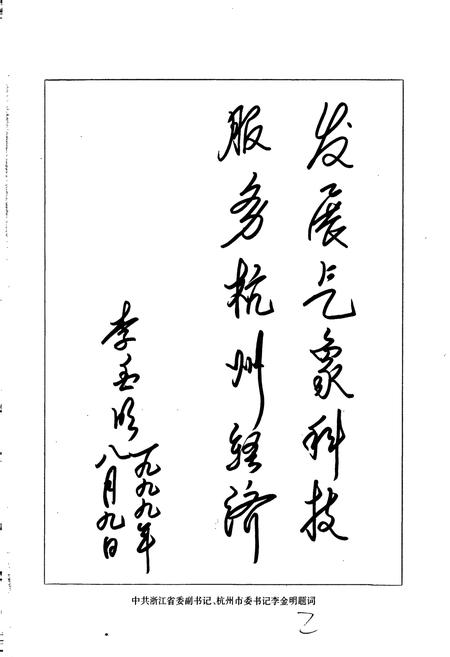 发展气象科技
服务杭州经济
李金明
一九九九年
八月九日
中共浙江省委副书记、杭州市委书记李金明题词